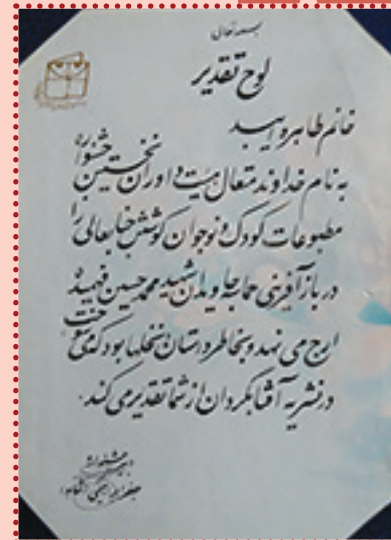 بسمه تعالی
لوح تقدیر
خانم طاهره ایبد
به نام خداوند متعال هیئت داوران نخستین جشنواره
مطبوعات کودک و نوجوان کوشش جنابعالی را
در بازآفرینی حماسه جاویدان شهید محمد حسین فهمیده
ارج می نهد و بخاطر داستان نخلها بود که می سوخت
در نشریه آفتابگردان از شما تقدیر می کند.
دبیر جشنواره
جعفر ابراهیمی (شاهد)